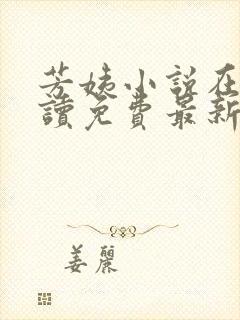 芳姨小説在
讀免費最新
姜麗